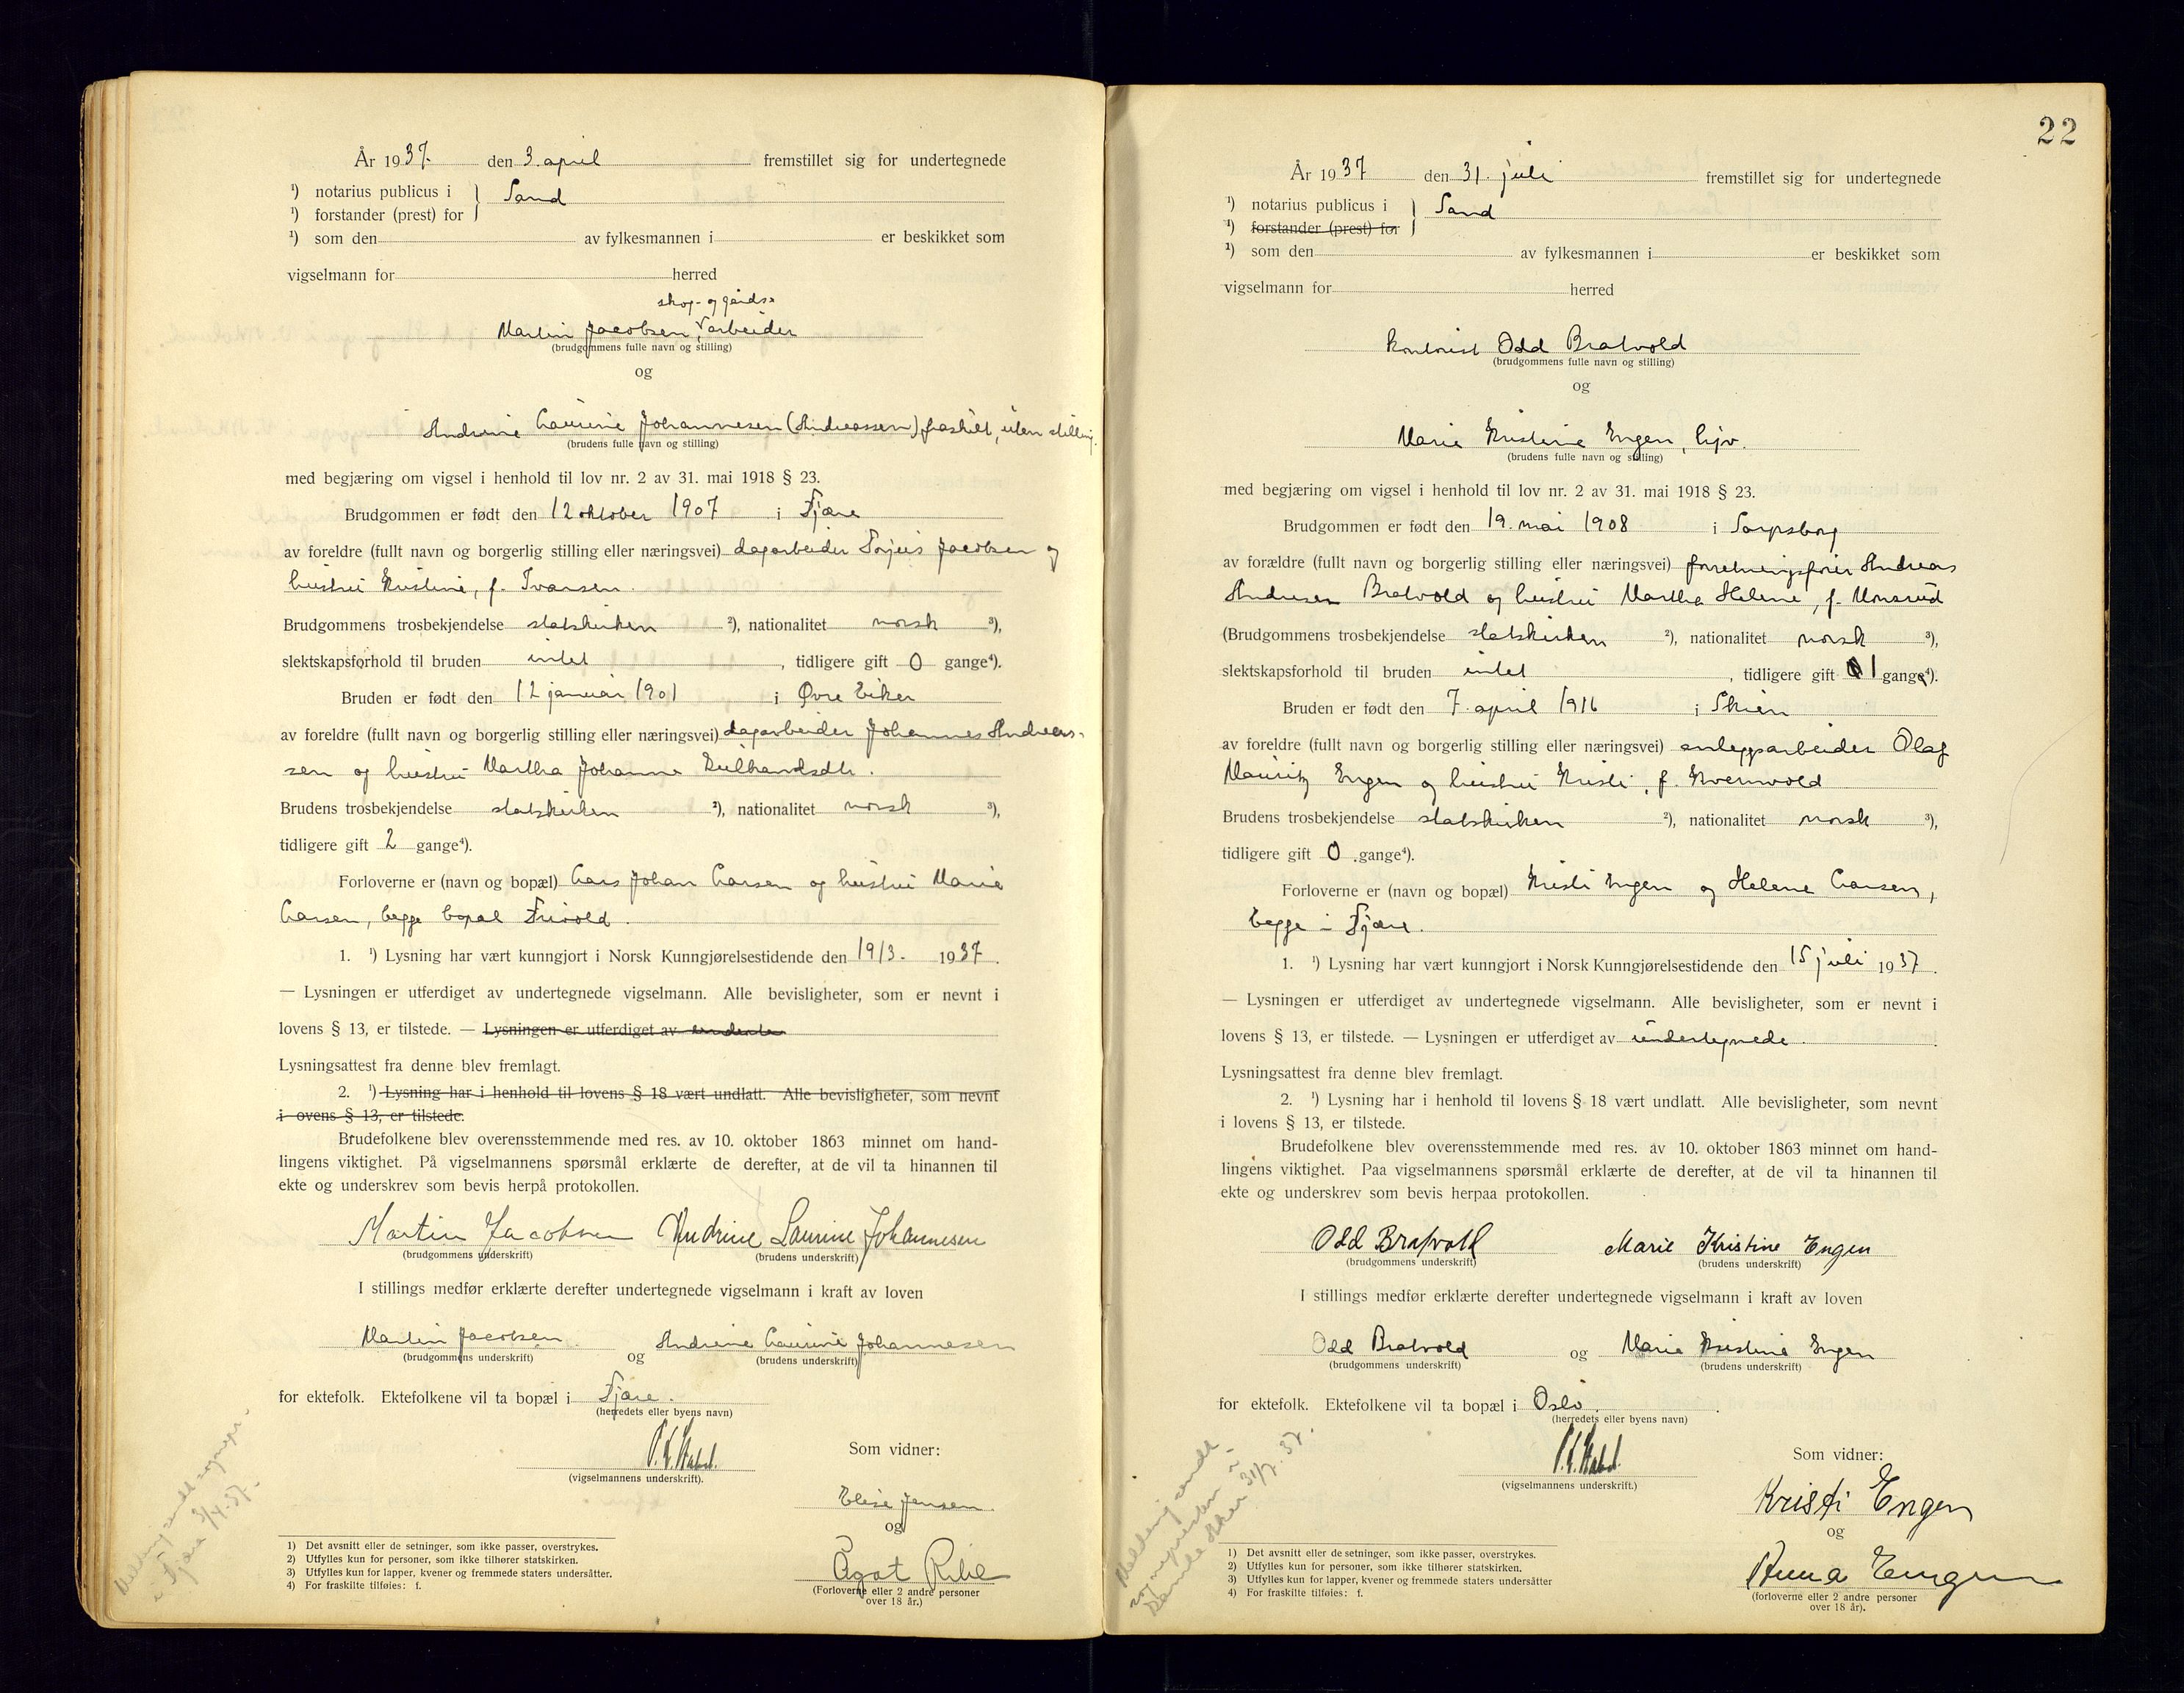 År 1937. den 3. april fremstillet sig for undertegnede
¹) notarius publicus i } Sand
¹) forstander (prest) for
¹) som den av fylkesmannen i er beskikket som
vigselmann for herred
skog- og gårds-
Martin Jacobsen, arbeider
(brudgommens fulle navn og stilling)
og
Andrine Laurine Johannesen (Andreassen) fraskilt, uten stilling.
(brudens fulle navn og stilling)
med begjæring om vigsel i henhold til lov nr. 2 av 31. mai 1918 § 23.
Brudgommen er født den 12 oktober 1907 i Fjære
av foreldre (fullt navn og borgerlig stilling eller næringsvei) dagarbeider Torjus Jacobsen og
hustru Kristine, f. Ivarsen.
Brudgommens trosbekjendelse statskirken ²), nationalitet norsk ³),
slektskapsforhold til bruden intet , tidligere gift 0 gange⁴).
Bruden er født den 12 januar 1901 i Øvre Eiker
av foreldre (fullt navn og borgerlig stilling eller næringsvei) dagarbeider Johannes Andreas-
sen og hustru Martha Johanne
Brudens trosbekjendelse statskirken ²), nationalitet norsk ³),
tidligere gift 2 gange⁴).
Forloverne er (navn og bopæl) Lars Johan Larsen og hustru Marie
Larsen, begge bopæl Frivold.
1. ¹) Lysning har vært kunngjort i Norsk Kunngjørelsestidende den 19/3. 1937.
— Lysningen er utferdiget av undertegnede vigselmann. Alle bevisligheter, som er nevnt i
lovens § 13, er tilstede. — Lysningen er utferdiget av
Lysningsattest fra denne blev fremlagt.
2. ¹) Lysning har i henhold til lovens § 18 vært undlatt. Alle bevisligheter, som nevnt
i ovens § 13, er tilstede.
Brudefolkene blev overensstemmende med res. av 10. oktober 1863 minnet om hand-
lingens viktighet. På vigselmannens spørsmål erklærte de derefter, at de vil ta hinannen til
ekte og underskrev som bevis herpå protokollen.
Martin Jacobsen Andrine Laurine Johannesen
(brudgommens underskrift) (brudens underskrift)
I stillings medfør erklærte derefter undertegnede vigselmann i kraft av loven
Martin Jacobsen og Andrine Laurine Johannesen
(brudgommens underskrift) (brudens underskrift)
for ektefolk. Ektefolkene vil ta bopæl i Fjære.
(herredets eller byens navn)
Som vidner:
(vigselmannens underskrift).
Elise Jensen.
og
Agot
(Forloverne eller 2 andre personer
over 18 år.)
Melding sendt sognepr.
i Fjære 3/4.37.
1) Det avsnitt eller de setninger, som ikke passer, overstrykes.
2) Utfylles kun for personer, som ikke tilhører statskirken.
3) Utfylles kun for lapper, kvener og fremmede staters undersåtter.
4) For fraskilte tilføies: f.
22
År 1937 den 31. juli fremstillet sig for undertegnede
¹) notarius publicus i } Sand
¹) forstander (prest) for
¹) som den av fylkesmannen i er beskikket som
vigselmann for herred
kontorist Odd Bratvold
(brudgommens fulle navn og stilling)
og
Marie Kristine Engen, hjv.
(brudens fulle navn og stilling)
med begjæring om vigsel i henhold til lov nr. 2 av 31. mai 1918 § 23.
Brudgommen er født den 19. mai 1908 i Sarpsborg
av forældre (fullt navn og borgerlig stilling eller næringsvei) forretningsfører Andreas
Andresen Bratvold og hustru Martha Helene, f. Monsrud
(Brudgommens trosbekjendelse statskirken ²), nationalitet norsk ³),
slektskapsforhold til bruden intet , tidligere gift 1 gange⁴).
Bruden er født den 7. april 1916 i Skien
av foreldre (fullt navn og borgerlig stilling eller næringsvei) anleggsarbeider Olaf
Mauritz Engen og hustru Kristi, f. Kvernvold
Brudens trosbekjendelse statskirken ²), nationalitet norsk ³),
tidligere gift 0 gange⁴).
Forloverne er (navn og bopæl) Kristi Engen og Helene Larsen,
begge i Fjære.
1. ¹) Lysning har vært kunngjort i Norsk Kunngjørelsestidende den 15 juli 1937.
— Lysningen er utferdiget av undertegnede vigselmann. Alle bevisligheter, som er nevnt i
lovens § 13, er tilstede. — Lysningen er utferdiget av undertegnede.
Lysningsattest fra denne blev fremlagt.
2. ¹) Lysning har i henhold til lovens § 18 vært undlatt. Alle bevisligheter, som nevnt
i lovens § 13, er tilstede.
Brudefolkene blev overensstemmende med res. av 10. oktober 1863 minnet om hand-
lingens viktighet. Paa vigselmannens spørsmål erklærte de derefter, at de vil ta hinannen til
ekte og underskrev som bevis herpaa protokollen.
Odd Bratvold Marie Kristine Engen
(brudgommens underskrift) (brudens underskrift)
I stillings medfør erklærte derefter undertegnede vigselmann i kraft av loven
Odd Bratvold og Marie Kristine Engen
(brudgommens underskrift) (brudens underskrift)
for ektefolk. Ektefolkene vil ta bopæl i Oslo.
(herredets eller byens navn)
Som vidner:
(vigselmannens underskrift.)
Kristi Engen
og
Anna Engen
(forloverne eller 2 andre personer
over 18 år).
Melding sendt
sognepresten i
Gamle Aker 31/7.37.
1) Det avsnitt eller de setninger, som ikke passer, overstrykes.
2) Utfylles kun for personer, som ikke tilhører statskirken.
3) Utfylles kun for lapper, kvener og fremmede staters undersåtter
4) For fraskilte tilføies: f.